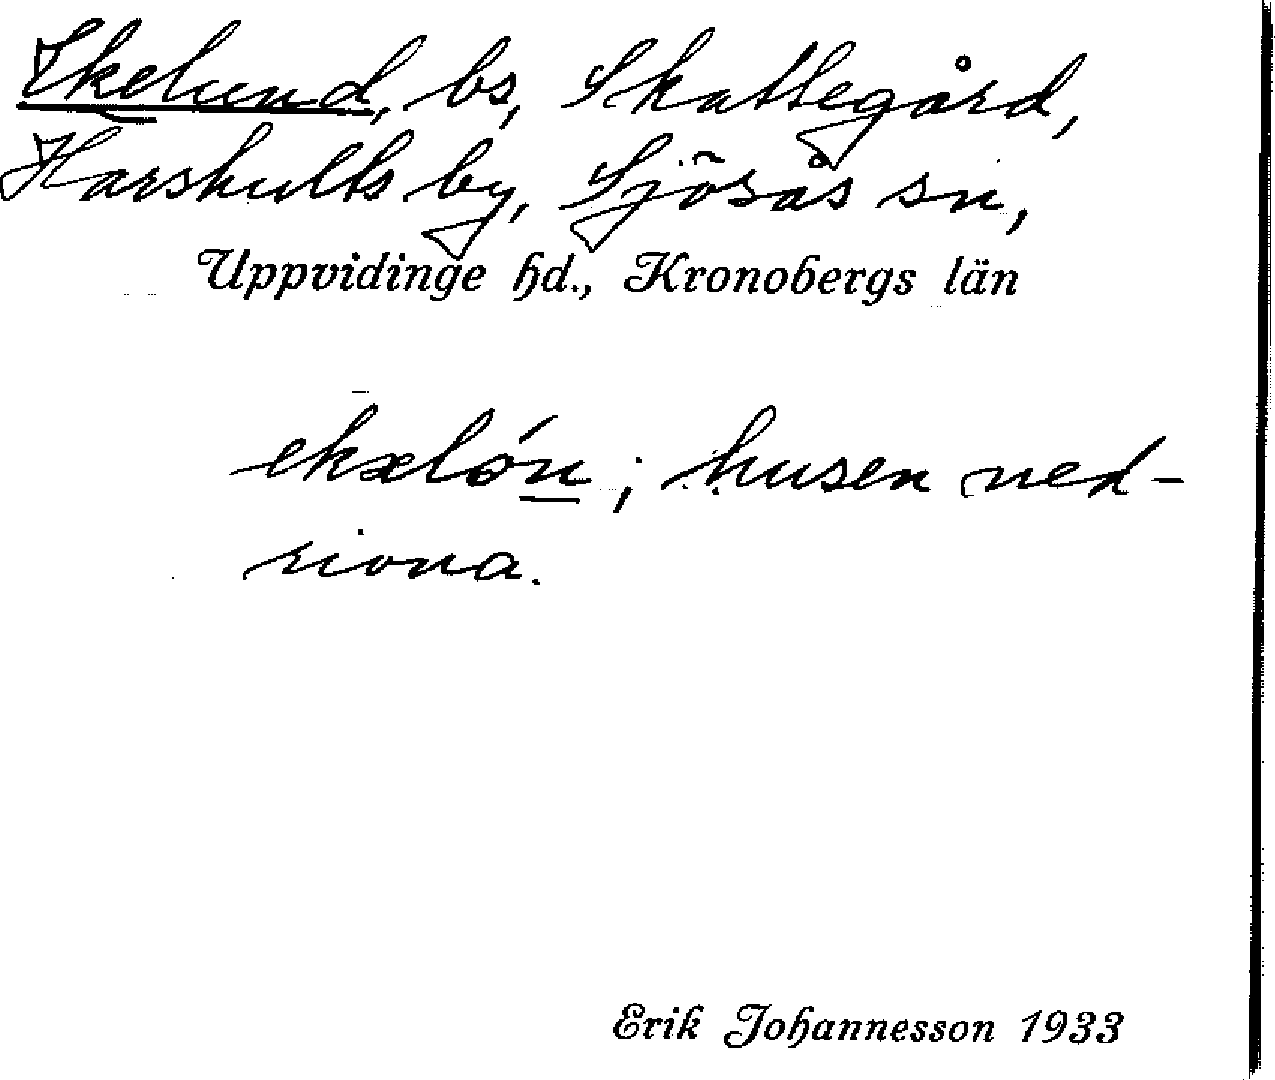 Ekelund, bs, Skattegård,
Harshults by, Sjösås sn,
Uppvidinge hd., Kronobergs län
ekəlón; husen ned-
rivna.
Erik Johannesson 1933